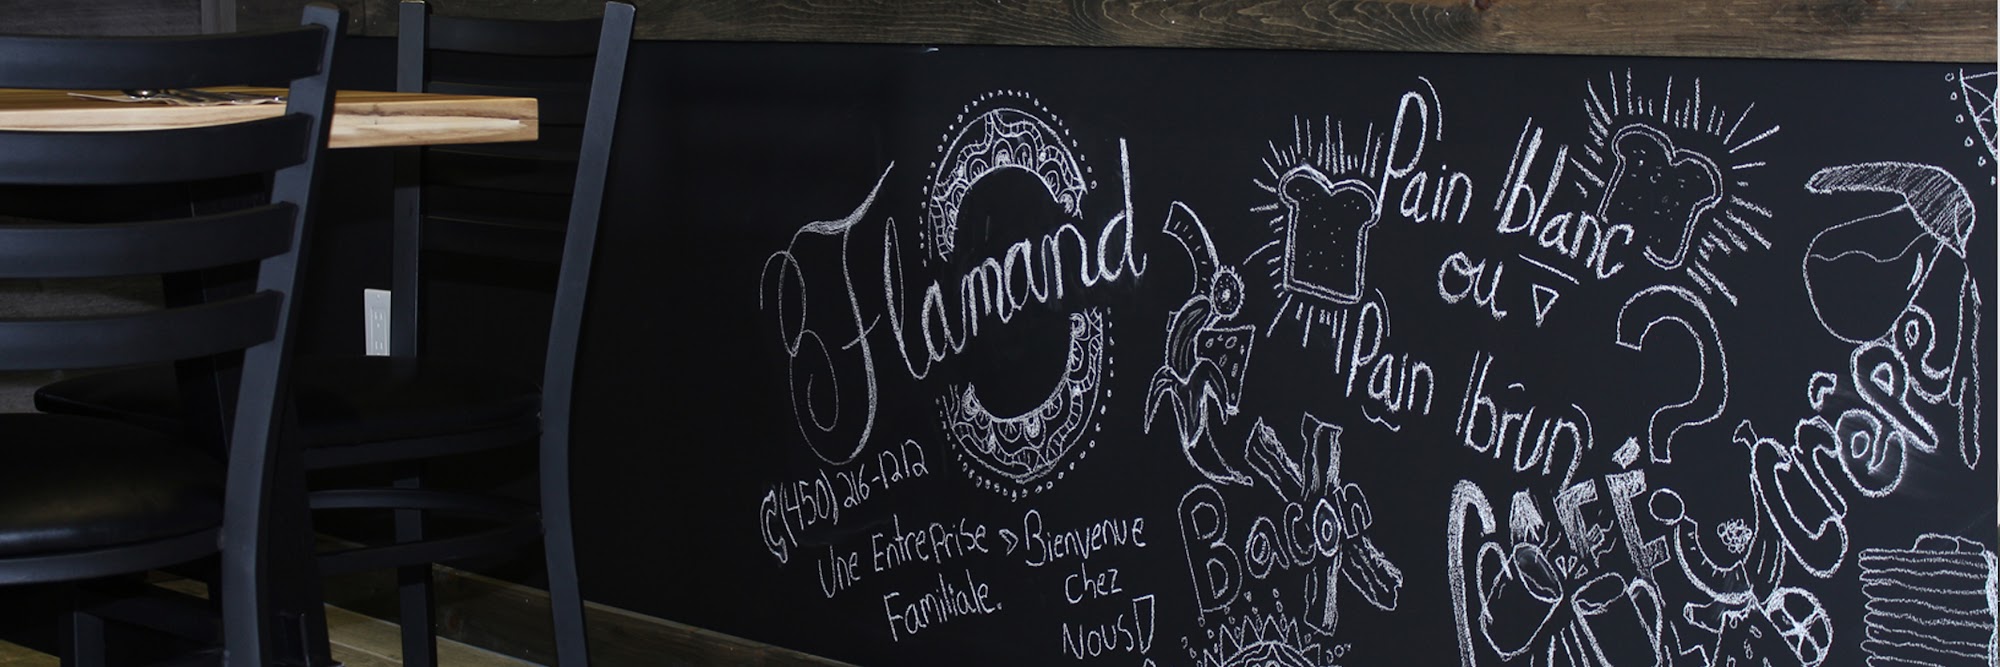 Flamand
(450) 216-1212
Une Entreprise
Familiale.
Bienvenue
chez
Nous!
Pain blanc
ou
Pain brun
?
Bacon
CAFÉ
Crêpe